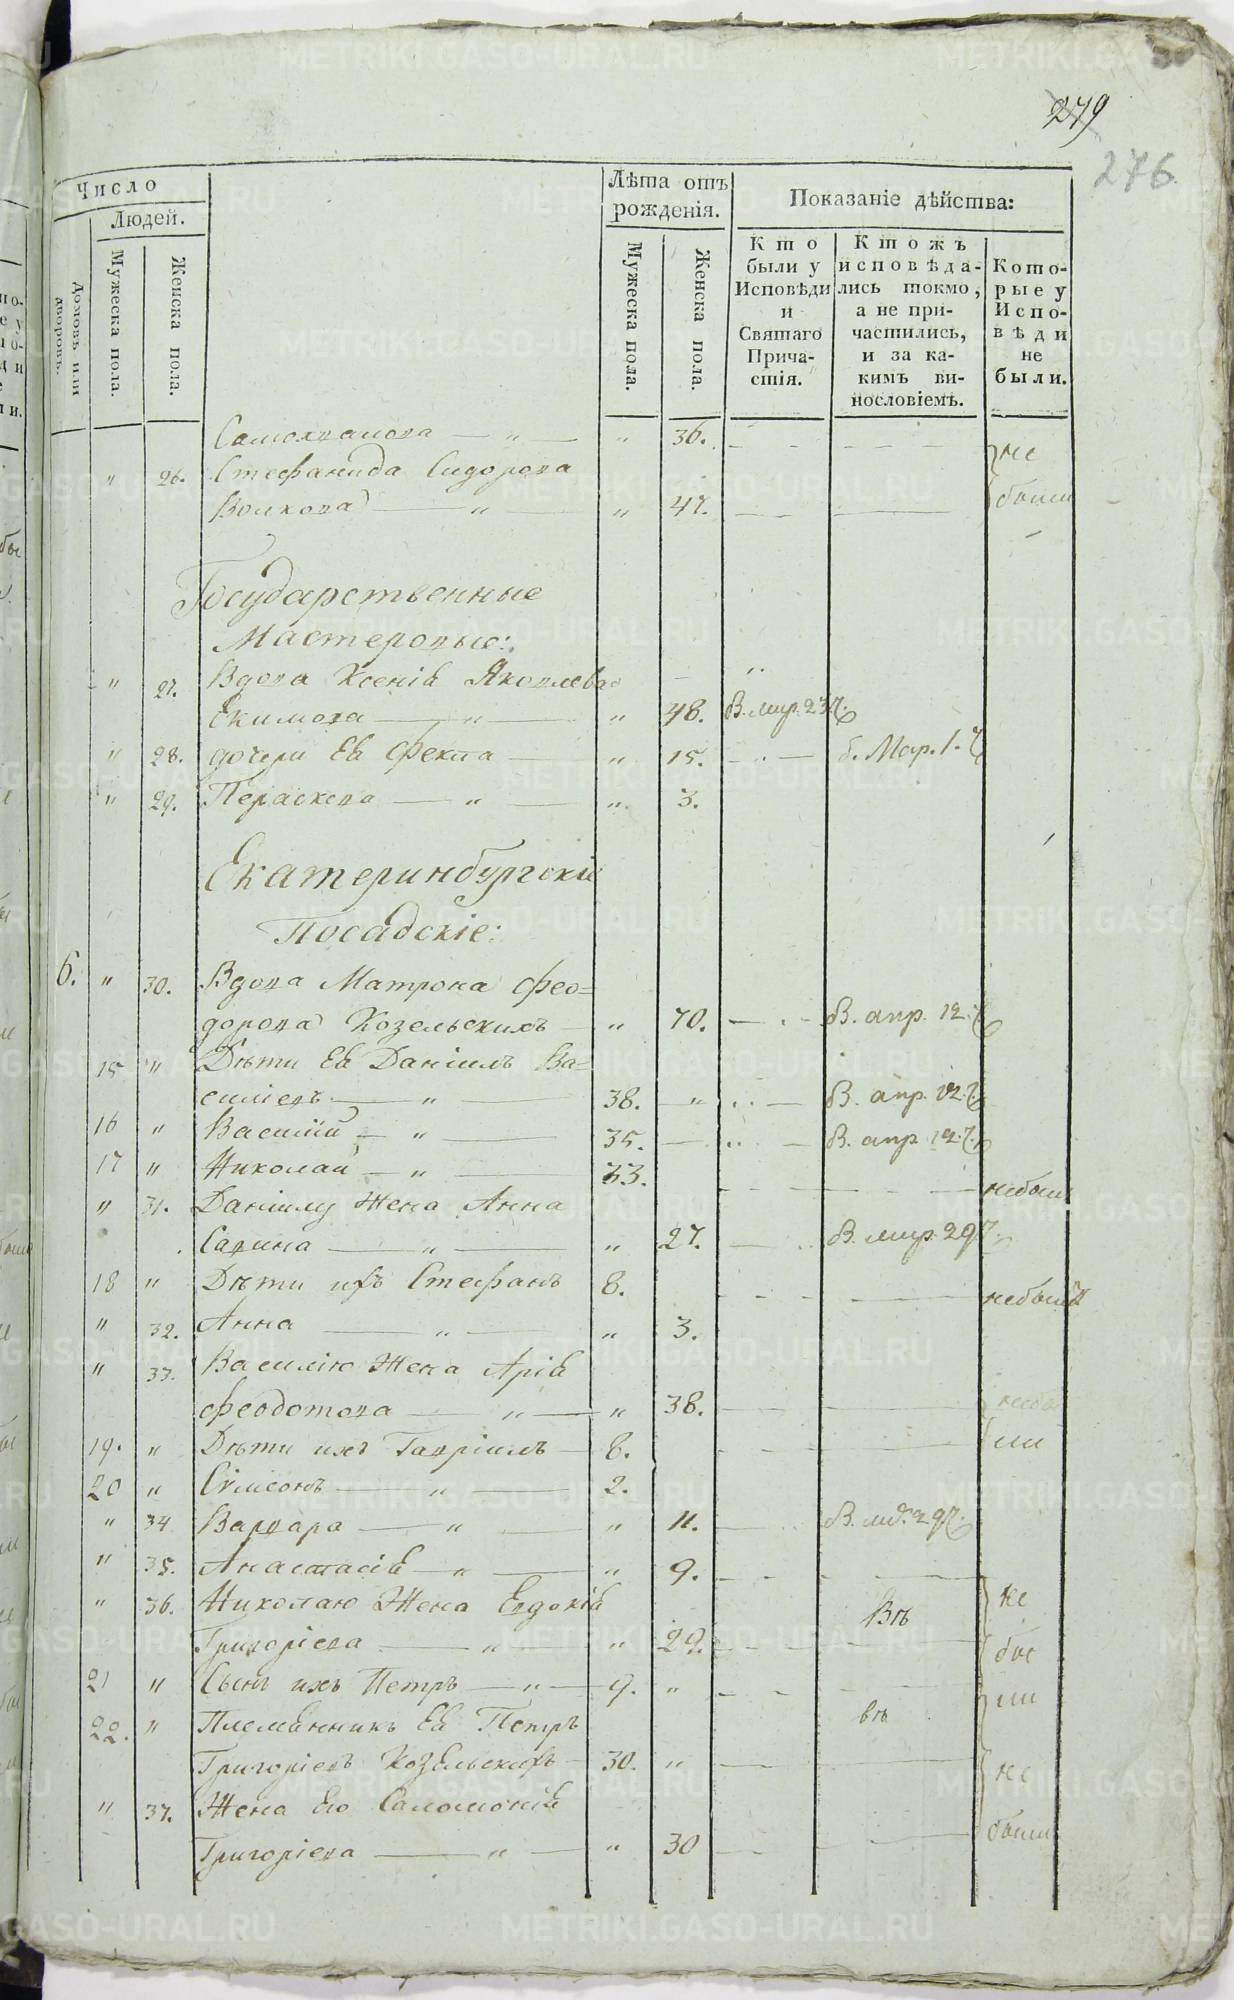 279
276
Число
Людей.
Домовъ или дворовъ.
Мужеска пола.
Женска пола.
Лѣта отъ рожденія.
Мужеска пола.
Женска пола.
Показаніе дѣйства:
Кто были у Исповѣди и Святаго Прича-стія.
Ктожъ исповѣда-лись токмо, а не при-частились, и за ка-кимъ ви-нословіемъ.
Кото-рые у Испо-вѣди не были.
Самохвалова — „ — „ 36. не
„ 26. Стефанида Сидорова
Волкова — „ — „ 47. были
Государственные
Мастеровые:
„ 27. Вдова Ксенія Яковлева
Екимова — „ — „ 48.
„ 28. дочери Ея Фекла — „ 15.
„ 29. Параскева — „ — „ 3.
Екатеринбургскіе
Посадскіе:
6. „ 30. Вдова Матрона Фео=
дорова Козельскихъ — „ 70. В. апр. 12.
15 „ Дѣти Ея Даніилъ Ва=
силіевъ — „ — 38. — „ В. апр. 12.
16 „ Василій — „ — 35. В. апр. 12.
17 „ Николай — „ — 33. небыли
„ 31. Даніилу Жена Анна
Савина — „ — „ 27. 29
18 „ Дѣти ихъ Стефанъ 8. небыли
„ 32. Анна — „ — „ 3.
„ 33. Василію Жена
Феодотова — „ — „ 38. небы
19. „ Дѣти ихъ Гавріилъ — 8. ли
20 „ Сімеонъ — „ — 2.
„ 34 Варвара — „ — „ 11. 29
„ 35. Анастасія — „ — „ 9.
„ 36. Николаю Жена Евдокія не
Григоріева — „ — „ 29. бы
21 „ Сынъ ихъ Петръ — „ — 9. „ ли
22. „ Племянникъ Ея Петръ
Григоріевъ Козельскихъ — 30. „ не
„ 37. Жена Его Саломонія
Григоріева — „ — „ 30 были